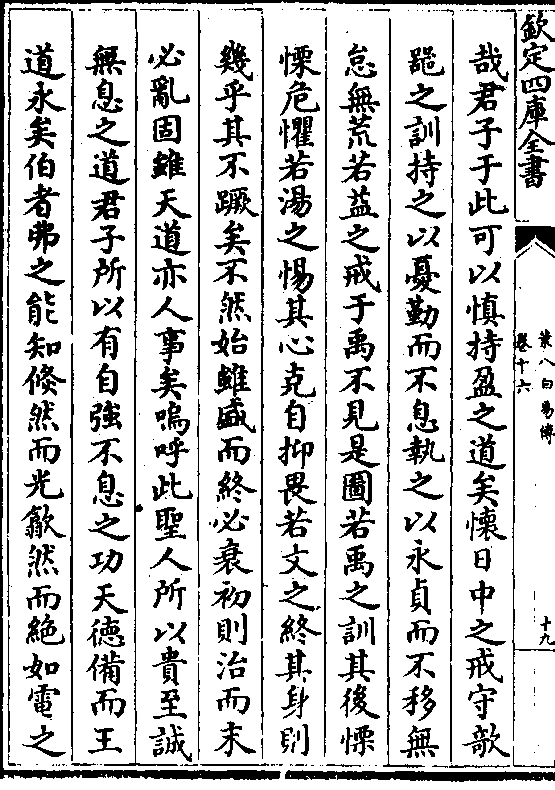 欽定四庫全書
葉八白易傳
卷十六
十九
哉君子于此可以慎持盈之道矣懷日中之戒守欹
噐之訓持之以憂勤而不息執之以永貞而不移無
怠無荒若益之戒于禹不見是圖若禹之訓其後慄
慄危懼若湯之惕其心克自抑畏若文之終其身則
幾乎其不蹶矣不然始雖盛而終必衰初則治而末
必亂固雖天道亦人事矣嗚呼此聖人所以貴至誠
無息之道君子所以有自強不息之功天德備而王
道永矣伯者弗之能知倐然而光歙然而絶如電之